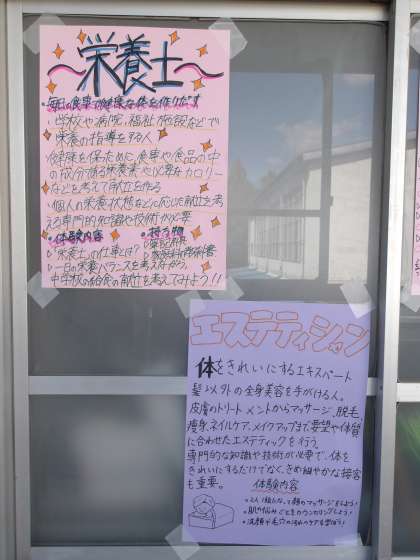 〜栄養士〜
・毎日の食事で健康な体を作りだす
・学校や病院、福祉施設などで
栄養の指導をする人
・健康を保ために、食事や食品の中
の成分である栄養素や必要なカロリー
などを考えて献立を作る
・個人の栄養状態などに応じた献立を考
える専門的知識や技術が必要
・体験内容 ・持ち物
▷栄養士の仕事とは? ▷筆記用具
▷一日の栄養バランスを考えながら、
中学校の給食の献立を考えてみよう!!
エステティシャン
体をきれいにするエキスパート
髪以外の全身美容を手がける人。
皮膚のトリートメントからマッサージ、脱毛、
痩身、ネイルケア、メイクアップまで要望や体質
に合わせたエステティックを行う。
専門的な知識や技術が必要で、体を
きれいにするだけでなく、きめ細やかな接客
も重要。
体験内容
・2人1組になって顔のマッサージをしよう!
・肌や悩みごとをカウンセリングしよう!
・洗顔や毛穴の汚れのケアを学ぼう!